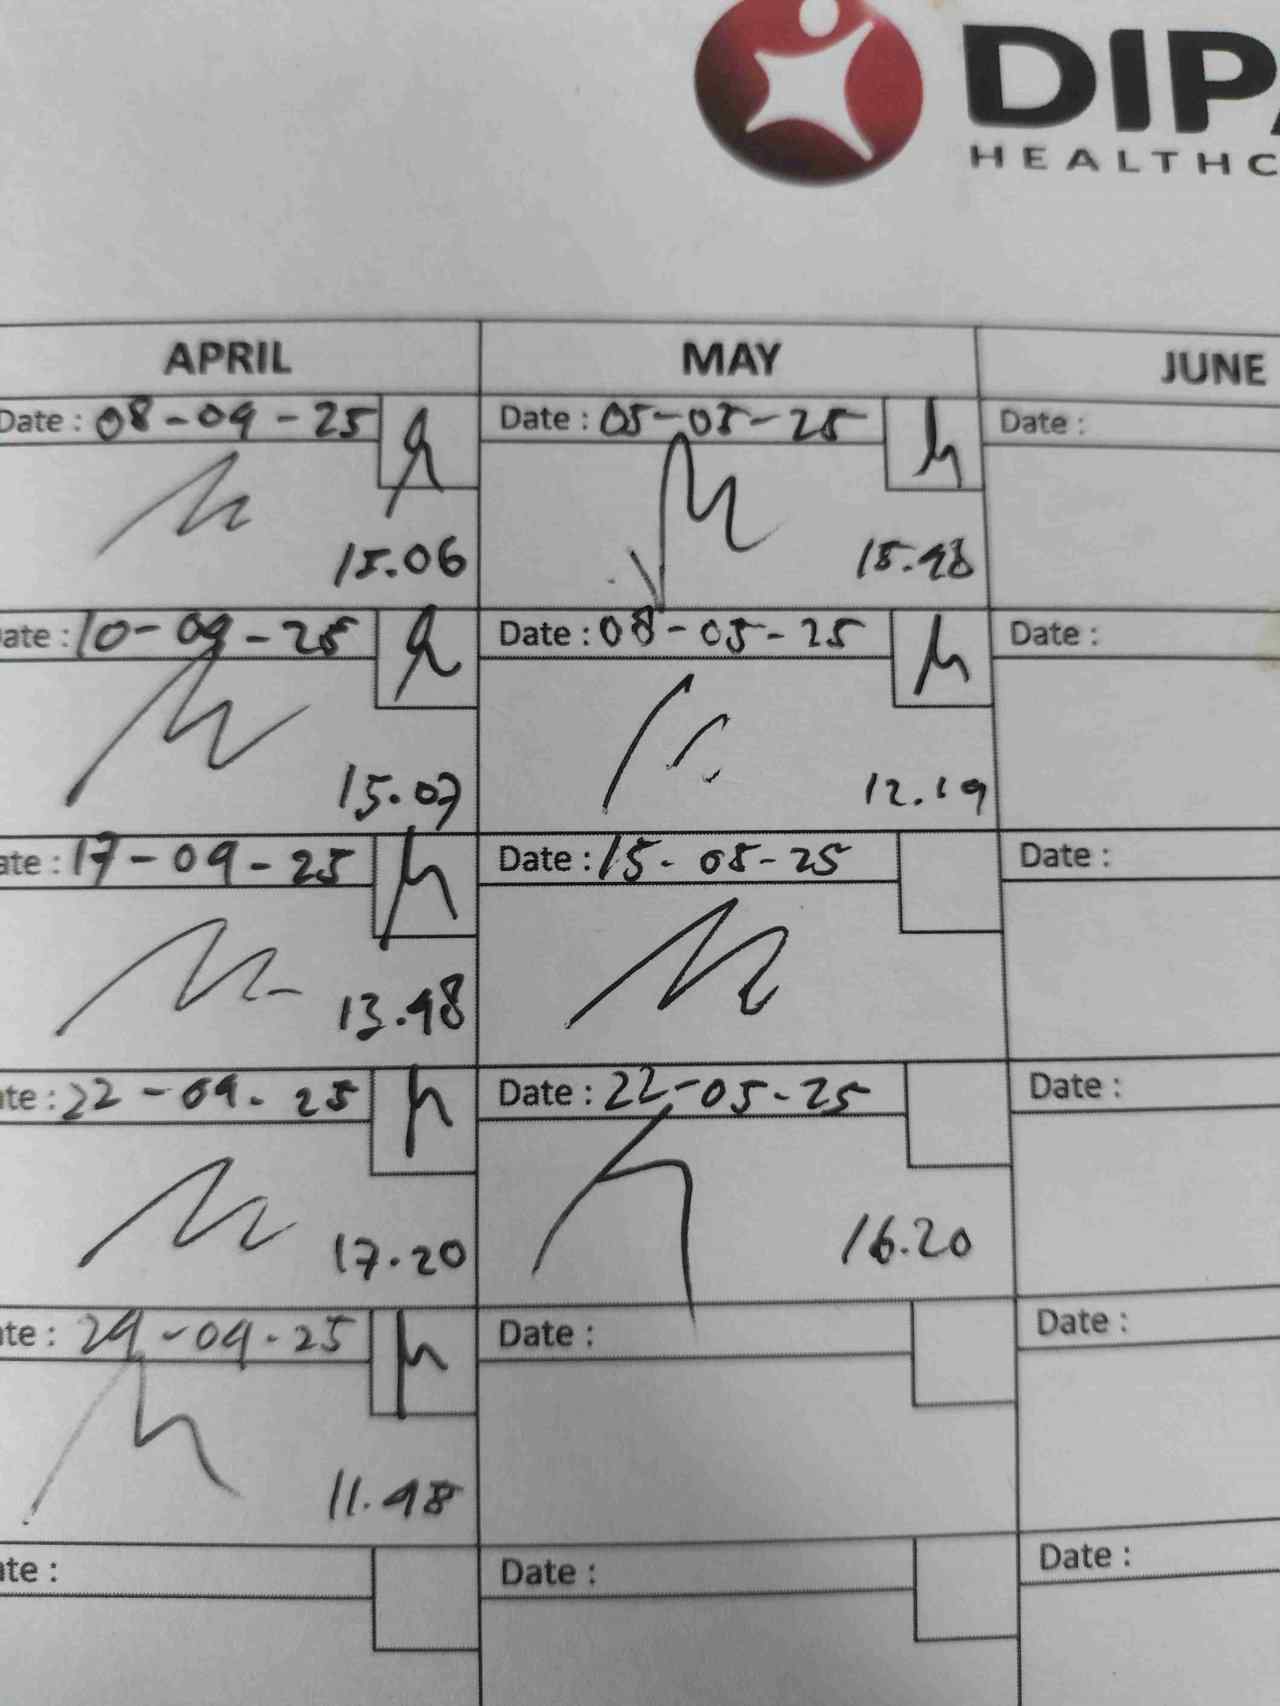 DIPA
HEALTHC
APRIL MAY JUNE
Date : 08-04-25 Date : 05-05-25 Date :
15.06 15.48
ate : 10-04-25 Date : 08-05-25 Date :
15.07 12.19
ate : 17-04-25 Date : 15-05-25 Date :
13.48
te : 22-04-25 Date : 22-05-25 Date :
17.20 16.20
te : 24-04-25 Date : Date :
11.48
te : Date : Date :